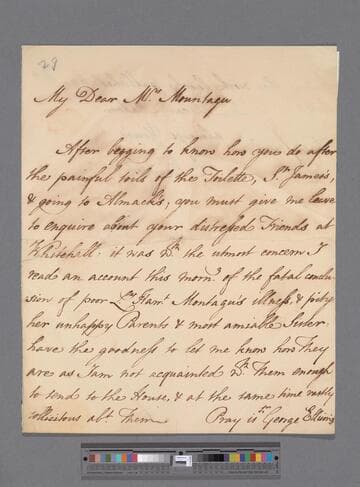 28
My Dear Mrs. Mountagu
After begging to know how you do after
the painful toils of the Toilette, St. James's,
& going to Almack's, you must give me leave
to enquire about your distressed Friends at
Whitehall. it was wth. the utmost concern, I
read an account this morng. of the fatal conclu
sion of poor Ly. Harrt. Montagu's illness, & pity
her unhappy Parents & most amiable Sister.
have the goodness to let me know how They
are as I am not acquainted wth. Them enough
to send to the House, & at the same time vastly
sollicitous abt. Them Pray is Sr. George